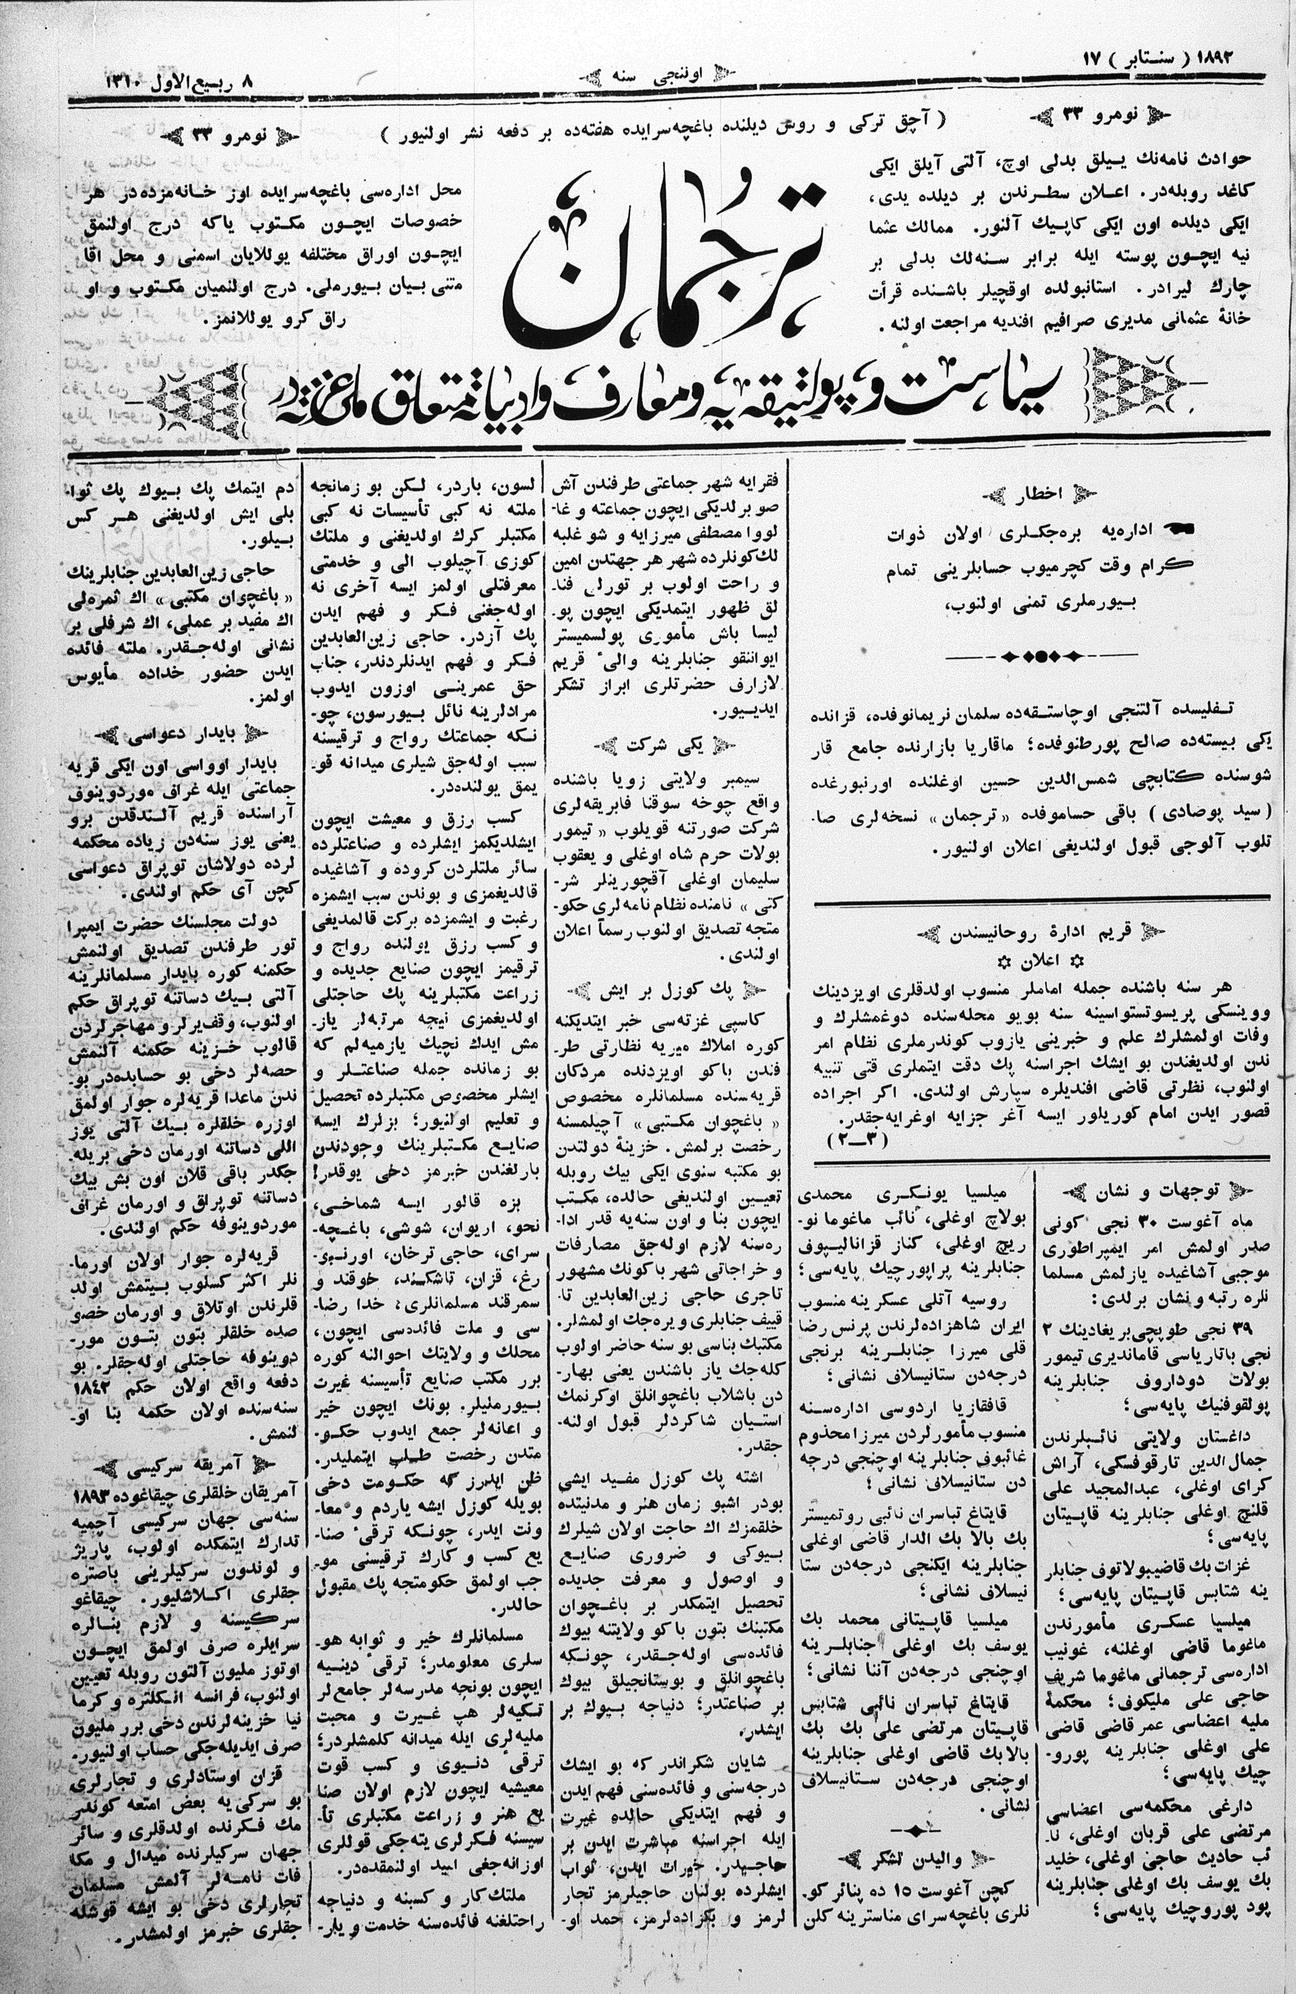 ١٨٩٢ ( سنتابر ) ١٧
اوننجی سنه
٨ ربیع‌الاول ١٣١٠
نومرو ٣٣
( آچق ترکی و روش دیلنده باغچه‌سرایده هفته‌ده بر دفعه نشر اولنیور )
نومرو ٣٣
حوادث نامه‌نك ییلق بدلی اوچ، آلتی آیلق ایکی
کاغد روبله‌در. اعلان سطرندن بر دیلده یدی،
ایکی دیلده اون ایکی کاپیك آلنور. ممالك عثما
نیه ایچون پوسته ایله برابر سنه‌لك بدلی بر
چارك لیرادر. استانبولده اوقچیلر باشنده قرأت
خانهٔ عثمانی مدیری صرافیم افندیه مراجعت اولنه.
ترجمان
محل اداره‌سی باغچه‌سرایده اوز خانه‌مزده‌در هر
خصوصات ایچون مکتوب یاکه درج اولنمق
ایچون اوراق مختلفه یوللایان اسمنی و محل اقا
متنی بیان بیورملی. درج اولنمیان مکتوب و او
راق کرو یوللانمز.
سیاست و پولتیقه‌یه و معارف و ادبیاته متعلق ملی غزته‌در
اخطار
اداره‌یه بره‌جکلری اولان ذوات
کرام وقت کچرمیوب حسابلرینی تمام
بیورملری تمنی اولنوب،
تفلیسده آلتنجی اوچاستقه‌ده سلمان نریمانوفده، قزانده
یکی بیسته‌ده صالح پورطنوفده؛ ماقاریا بازارنده جامع قار
شوسنده کتابچی شمس‌الدین حسین اوغلنده اورنبورغده
(سید پوصادی) باقی حساموفده «ترجمان» نسخه‌لری صا-
تلوب آلوجی قبول اولندیغی اعلان اولنیور.
قریم ادارهٔ روحانیسندن
اعلان
هر سنه باشنده جمله اماملر منسوب اولدقلری اویزدینك
ووینسکی پریسوتستواسینه سنه بویو محله‌سنده دوغمشلرك و
وفات اولمشلرك علم و خبرینی یازوب کوندرملری نظام امر
ندن اولدیغندن بو ایشك اجراسنه پك دقت ایتملری قتی تنبیه
اولنوب، نظرتی قاضی افندیلره سپارش اولندی. اکر اجراده
قصور ایدن امام کوریلور ایسه آغر جزایه اوغرایه‌جقدر.
(٣—٢)
توجهات و نشان
ماه آغوست ٣٠ نجی کونی
صدر اولمش امر ایمپراطوری
موجبی آشاغیده یازلمش مسلما
نلره رتبه و نشان برلدی:
٣٩ نجی طوپچی بریغادینك ٢
نجی باتاریاسی قاماندیری تیمور
بولات دوداروف جنابلرینه
پولقوفنیك پایه‌سی؛
داغستان ولایتی نائبلرندن
جمال‌الدین تارقوفسکی، آراش
کرای اوغلی، عبدالمجید علی
قلنچ اوغلی جنابلرینه قاپیتان
پایه‌سی؛
غزات بك قاضیبولاتوف جنابلر
ینه شتابس قاپیتان پایه‌سی؛
میلسیا عسکری مأمورندن
ماغوما قاضی اوغلنه، غونیب
اداره‌سی ترجمانی ماغوما شریف
حاجی علی ملیکوف؛ محکمهٔ
ملیه اعضاسی عمر قاضی قاضی
علی اوغلی جنابلرینه پورو-
چیك پایه‌سی؛
دارغی محکمه‌سی اعضاسی
مرتضی علی قربان اوغلی، نا-
ئب حادیث حاجی اوغلی، خلید
بك یوسف بك اوغلی جنابلرینه
پود پوروچیك پایه‌سی؛
میلسیا یونکری محمدی
بولاچ اوغلی، نائب ماغوما نو-
ریچ اوغلی، کناز قزانالیپوف
جنابلرینه پراپورچیك پایه‌سی؛
روسیه آتلی عسکرینه منسوب
ایران شاهزاده‌لرندن پرنس رضا
قلی میرزا جنابلرینه برنجی
درجه‌دن ستانیسلاف نشانی؛
قافقازیا اردوسی اداره‌سنه
منسوب مأمورلردن میرزا مخدوم
غائبوف جنابلرینه اوچنجی درجه
دن ستانیسلاف نشانی؛
قایتاغ تباسران نائبی روتمیستر
بك بالا بك الدار قاضی اوغلی
جنابلرینه ایکنجی درجه‌دن ستا
نیسلاف نشانی؛
میلسیا قاپیتانی محمد بك
یوسف بك اوغلی جنابلرینه
اوچنجی درجه‌دن آننا نشانی؛
قایتاغ تباسران نائبی شتابس
قاپیتان مرتضی علی بك بك
بالا بك قاضی اوغلی جنابلرینه
اوچنجی درجه‌دن ستانیسلاف
نشانی.
والیدن تشکر
کچن آغوست ١٥ ده پناثر کو.
نلری باغچه‌سرای مناسترینه کلن
فقرایه شهر جماعتی طرفندن آش
صو برلدیکی ایچون جماعته و غا-
لووا مصطفی میرزایه و شو غلبه
لك کونلرده شهر هر جهتدن امین
و راحت اولوب بر تورلی فنا-
لق ظهور ایتمدیکی ایچون پو-
لیسا باش مأموری پولسمیستر
ایواننقو جنابلرینه والیٔ قریم
لازارف حضرتلری ابراز تشکر
ایدییور.
یکی شرکت
سیمبر ولایتی زویا باشنده
واقع چوخه سوقنا فابریقه‌لری
شرکت صورتنه قویلوب «تیمور
بولات حرم شاه اوغلی و یعقوب
سلیمان اوغلی آقچورینلر شر-
کتی» نامنده نظام نامه‌لری حکو-
متجه تصدیق اولنوب رسماً اعلان
اولندی.
پك کوزل بر ایش
کاسپی غزته‌سی خبر ایتدیکنه
کوره املاك میریه نظارتی طر-
فندن باکو اویزدنده مردکان
قریه‌سنده مسلمانلره مخصوص
«باغچوان مکتبی» آچیلمسنه
رخصت برلمش. خزینهٔ دولتدن
بو مکتبه سنوی ایکی بیك روبله
تعیین اولندیغی حالده، مکتب
ایچون بنا و اون سنه‌یه قدر ادا-
ره‌سنه لازم اوله‌جق مصارفات
و خراجاتی شهر باکونك مشهور
تاجری حاجی زین‌العابدین تا-
قییف جنابلری ویره‌جك اولمشلر.
مکتبك بناسی بو سنه حاضر اولوب
کله‌جك یاز باشندن یعنی بهار-
دن باشلاب باغچوانلق اوکرنمك
استیان شاکردلر قبول اولنه-
جقدر.
اشته پك کوزل مفید ایشی
بودر اشبو زمان هنر و مدنیتده
خلقمزك اك حاجت اولان شیلرك
بیوکی و ضروری صنایع
و اوصول و معرفت جدیده
تحصیل ایتمکدر بر باغچوان
مکتبنك بتون باکو ولایتنه بیوك
فائده‌سی اوله‌جقدر، چونکه
باغچوانلق و بوستانجیلق بیوك
بر صناعتدر؛ دنیاجه بیوك بر
ایشدر.
شایان شکراندر که بو ایشك
درجه‌سنی و فائده‌سنی فهم ایدن
و فهم ایتدیکی حالده غیرت
ایله اجراسنه مباشرت ایدن بر
حاجیدر. خورات ایدن، ثواب
ایشلرده بولنان حاجیلرمز تجار
لرمز و بکزاده‌لرمز، حمد او-
لسون، باردر، لکن بو زمانجه
ملته نه کبی تأسیسات نه کبی
مکتبلر کرك اولدیغنی و ملتك
کوزی آچیلوب الی و خدمتی
معرفتلی اولمز ایسه آخری نه
اوله‌جغنی فکر و فهم ایدن
پك آزدر. حاجی زین‌العابدین
فکر و فهم ایدنلردندر، جناب
حق عمرینی اوزون ایدوب
مرادلرینه نائل بیورسون، چو-
نکه جماعتك رواج و ترقیسنه
سبب اوله‌جق شیلری میدانه قو-
یمق یولنده‌در.
کسب رزق و معیشت ایچون
ایشلدیکمز ایشلرده و صناعتلرده
سائر ملتلردن کروده و آشاغیده
قالدیغمزی و بوندن سبب ایشمزه
رغبت و ایشمزده برکت قالمدیغی
و کسب رزق یولنده رواج و
ترقیمز ایچون صنایع جدیده و
زراعت مکتبلرینه پك حاجتلی
اولدیغمزی نیچه مرتبه‌لر یاز-
مش ایدك نچیك یازمیه‌لم که
بو زمانده جمله صناعتلر و
ایشلر مخصوص مکتبلرده تحصیل
و تعلیم اولنیور؛ بزلرك ایسه
صنایع مکتبلرینك وجودندن
بارلغندن خبرمز دخی یوقدر!
بزه قالور ایسه شماخی،
نحو، اریوان، شوشی، باغچه-
سرای، حاجی ترخان، اورنبو-
رغ، قزان، تاشکند، خوقند و
سمرقند مسلمانلری؛ خدا رضا-
سی و ملت فائده‌سی ایچون،
محلك و ولایتك احوالنه کوره
برر مکتب صنایع تأسیسنه غیرت
بیورملیلر. بونك ایچون خیر
و اعانه‌لر جمع ایدوب حکو-
متدن رخصت طلب ایتملیدر.
ظن ایدرز که حکومت دخی
بویله کوزل ایشه یاردم و معا-
ونت ایدر، چونکه ترقیٔ صنا-
یع کسب و کارك ترقیسنی مو-
جب اولمق حکومتجه پك مقبول
حالدر.
مسلمانلرك خیر و ثوابه هو-
سلری معلومدر؛ ترقیٔ دینیه
ایچون بونجه مدرسه‌لر جامع‌لر
تکیه‌لر هپ غیرت و محبت
ملیه‌لری ایله میدانه کلمشلردر؛
ترقیٔ دنیوی و کسب قوت
معیشیه ایچون لازم اولان صنا
یع هنر و زراعت مکتبلری تأ-
سیسنه فکرلری یته‌جکی قوللری
اوزانه‌جغی امید اولنمقده‌در.
ملتك کار و کسبنه و دنیاجه
راحتلغنه فائده‌سنه خدمت و یار-
دم ایتمك پك بیوك پك ثوا-
بلی ایش اولدیغنی هر کس
بیلور.
حاجی زین‌العابدین جنابلرینك
«باغچوان مکتبی» اك ثمره‌لی
اك مفید بر عملی، اك شرفلی بر
نشانی اوله‌جقدر. ملته فائده
ایدن حضور خداده مأیوس
اولمز.
بایدار دعواسی
بایدار اوواسی اون ایکی قریه
جماعتی ایله غراف موردوینوف
آراسنده قریم آلندقدن برو
یعنی یوز سنه‌دن زیاده محکمه
لرده دولاشان توپراق دعواسی
کچن آی حکم اولندی.
دولت مجلسنك حضرت ایمپرا
تور طرفندن تصدیق اولنمش
حکمنه کوره بایدار مسلمانلرینه
آلتی بیك دساتنه توپراق حکم
اولنوب، وقفیرلر و مهاجرلردن
قالوب خزینه حکمنه آلنمش
حصه‌لر دخی بو حسابده‌در بو-
ندن ماعدا قریه‌لره جوار اولمق
اوزره خلقلره بیك آلتی یوز
اللی دساتنه اورمان دخی بریله.
جکدر باقی قلان اون بش بیك
دساتنه توپراق و اورمان غراف
موردوینوفه حکم اولندی.
قریه‌لره جوار اولان اورما-
نلر اکثر کسلوب بیتمش اولد
قلرندن اوتلاق و اورمان خصو
صده خلقلر بتون بتون مور-
دوینوفه حاجتلی اوله‌جقلر. بو
دفعه واقع اولان حکم ١٨٤٢
سنه‌سنده اولان حکمه بنا او-
لنمش.
آمریقه سرکیسی
آمریقان خلقلری چیقاغوده ١٨٩٣
سنه‌سی جهان سرکیسی آچمیه
تدارك ایتمکده اولوب، پاریژ
و لوندون سرکیلرینی باصتره
جقلری اکلاشلیور. چیقاغو
سرکیسنه و لازم بنالره
سرایلره صرف اولمق ایچون
اوتوز ملیون آلتون روبله تعیین
اولنوب، فرانسه انکلتره و کرما
نیا خزینه‌لرندن دخی برر ملیون
صرف ایدیله‌جکی حساب اولنیور.
قزان اوستادلری و تجارلری
بو سرکی‌یه بعض امتعه کوندر
مك فکرنده اولدقلری و سائر
جهان سرکیلرنده میدال و مکا
فات نامه‌لر آلمش مسلمان
تجارلری دخی بو ایشه قوشله
جقلری خبرمز اولمشدر.